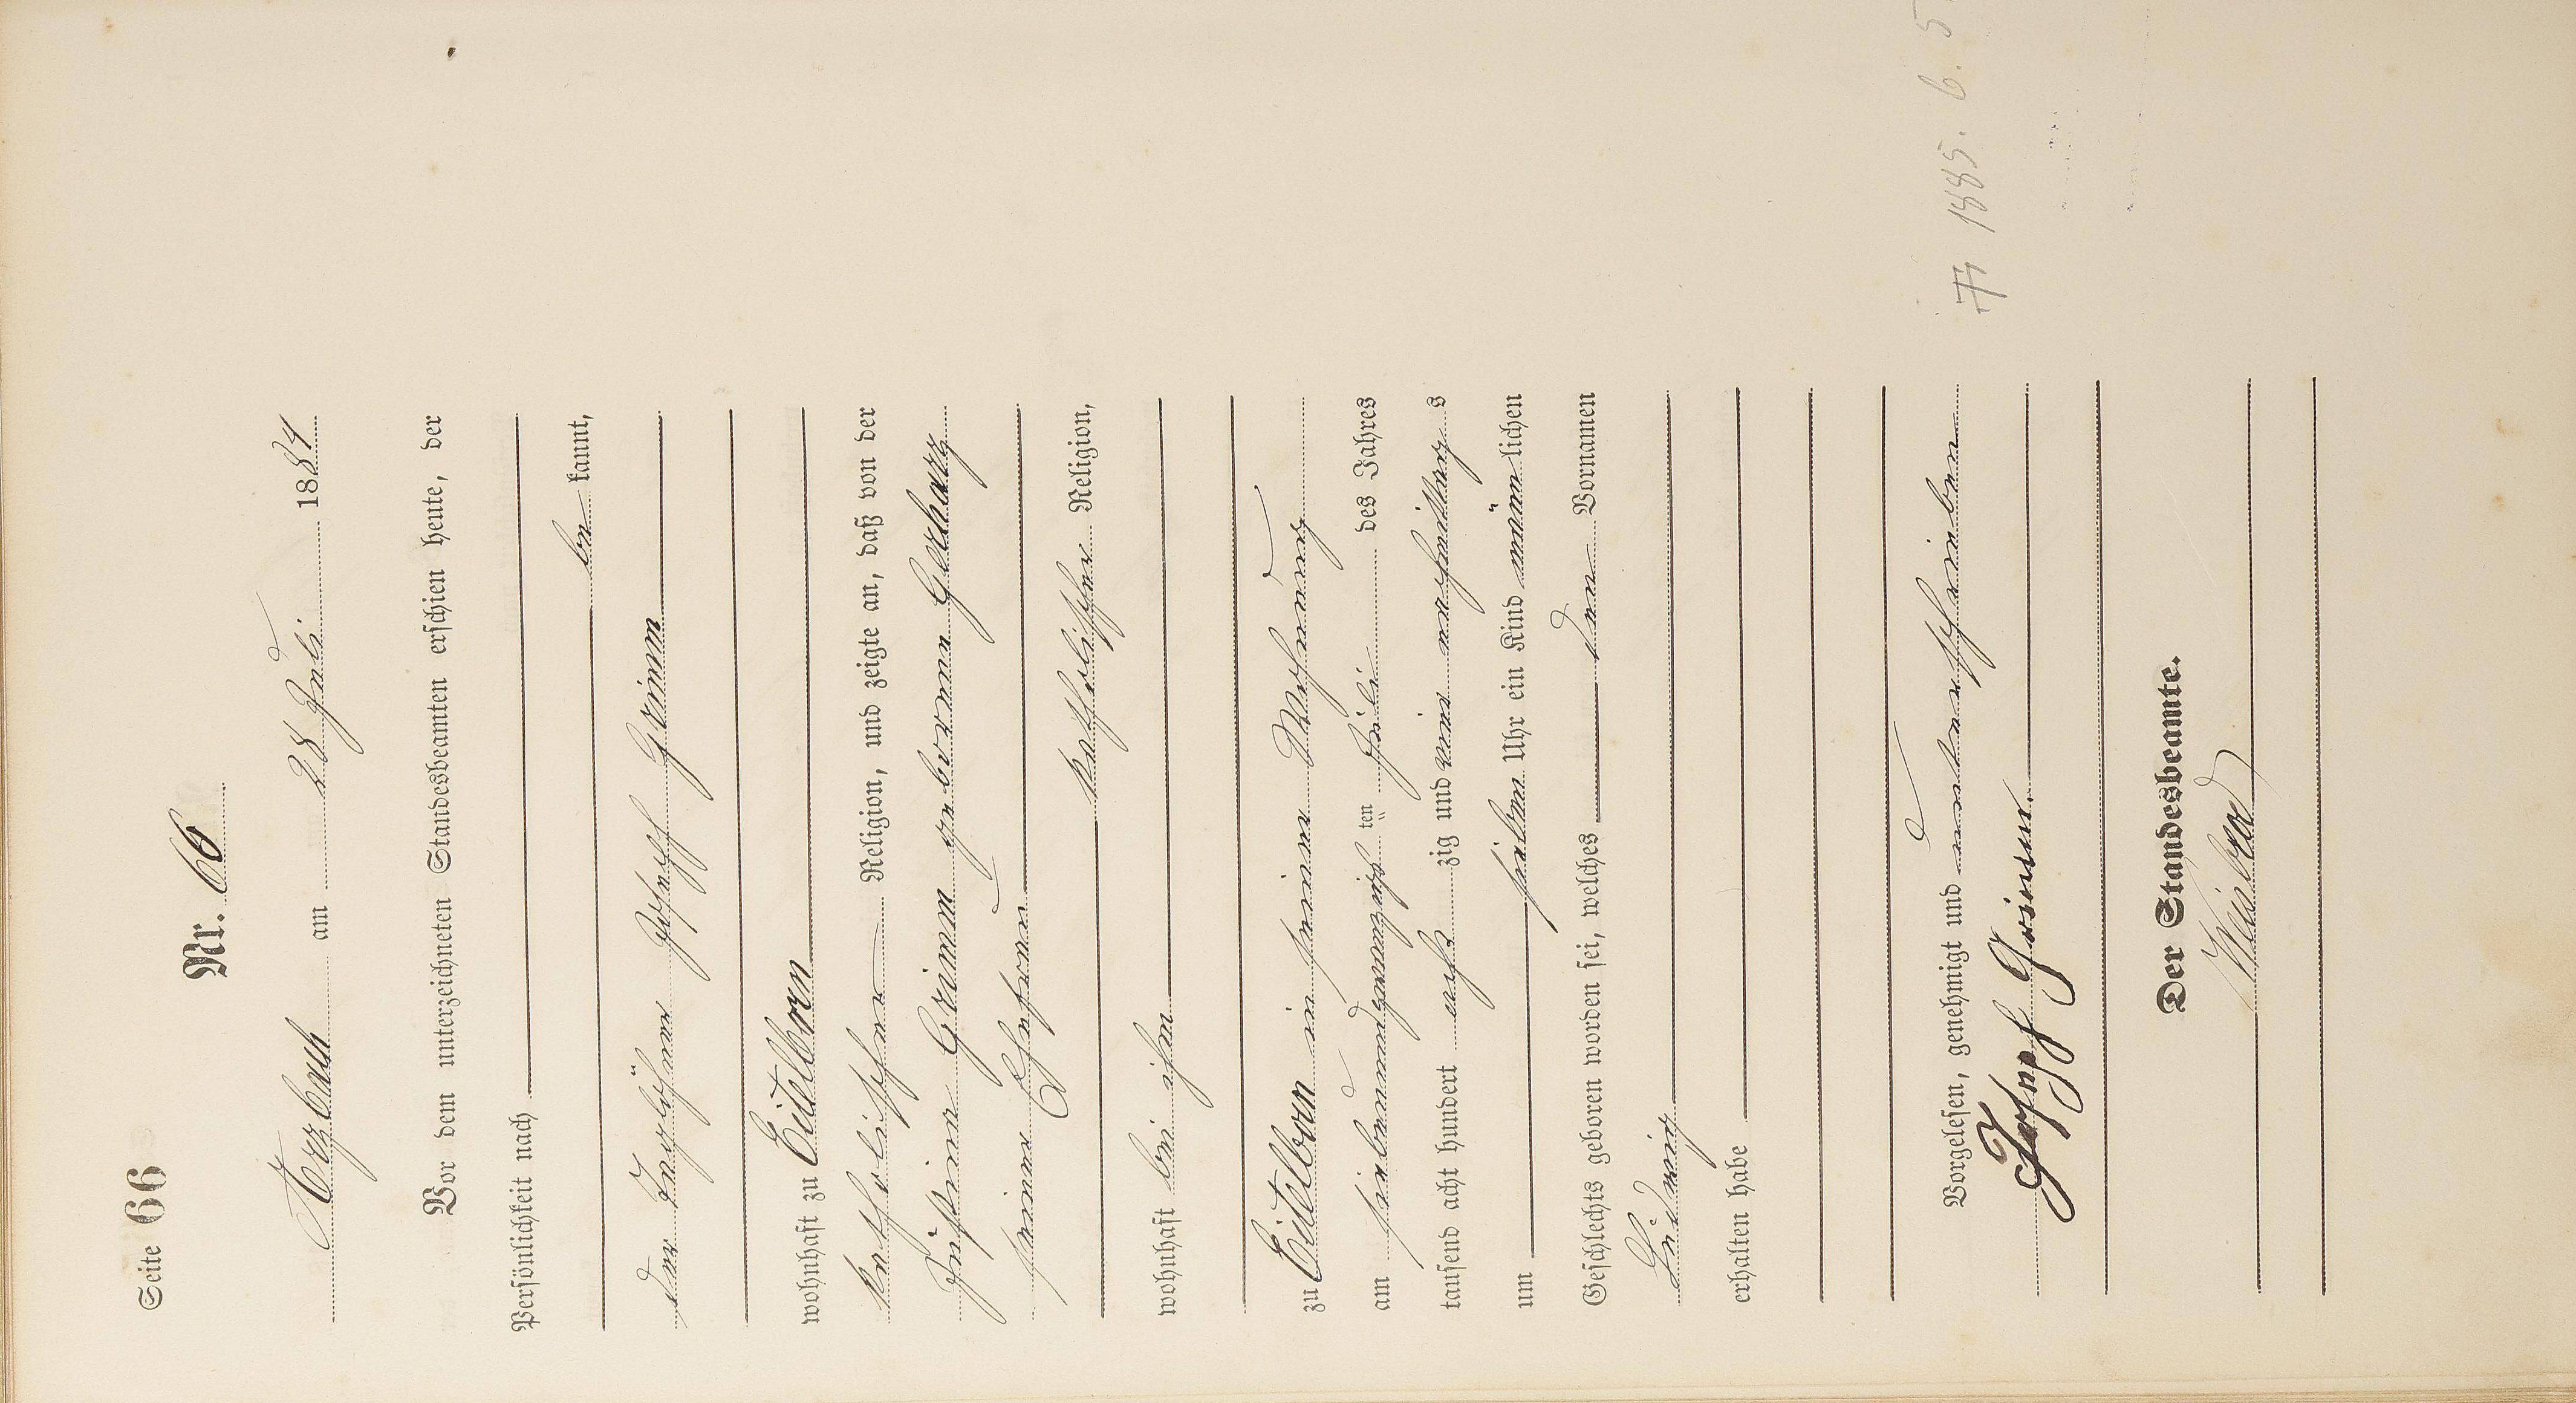 Seite 66
Nr. 66
Arzbach am 28 Juli 1884
Vor dem unterzeichneten Standesbeamten erschien heute, der
Persönlichkeit nach
be kannt,
der Taglöhner Joseph Grimm
wohnhaft zu Eitelborn
katholischer Religion, und zeigte an, daß von der
Justine Grimm geborene Gerharz
seiner Ehefrau
katholischer Religion,
wohnhaft bei ihm
zu Eitelborn in seiner Wohnung
am siebenundzwanzigsten Juli des Jahres
tausend acht hundert acht zig und vier nachmittags
um sieben Uhr ein Kind männlichen
Geschlechts geboren worden sei, welches den Vornamen
Ludwig
erhalten habe
Vorgelesen, genehmigt und unterschrieben
Joseph Grimm.
Der Standesbeamte.
† 1885. 6. 5